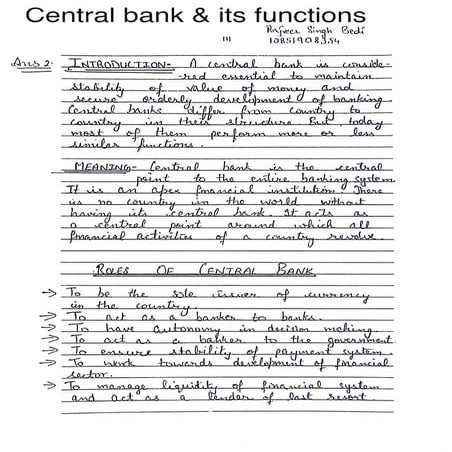 Central bank & its functions
Rajveer Singh Bedi
(1)
10851908354
Ans 2.
INTRODUCTION- A central bank is conside-
-red essential to maintain
stability of value of money and
secure orderly development of banking
Central banks differ from country to
country in their structure But, today
most of them perform more or less
similar functions.
MEANING- Central bank is the central
point to the entire banking system.
It is an apex financial institution. There
is no country in the world without
having its central bank. It acts as
a central point around which all
financial activities of a country revolve.
ROLES OF CENTRAL BANK.
→ To be the sole issuer of currency
in the country.
→ To act as a banker to banks.
→ To have autonomy in decision making.
→ To act as a banker to the government
→ To ensure stability of payment system.
→ To work towards development of financial
sector.
→ To manage liquidity of financial system
and act as a lender of last resort